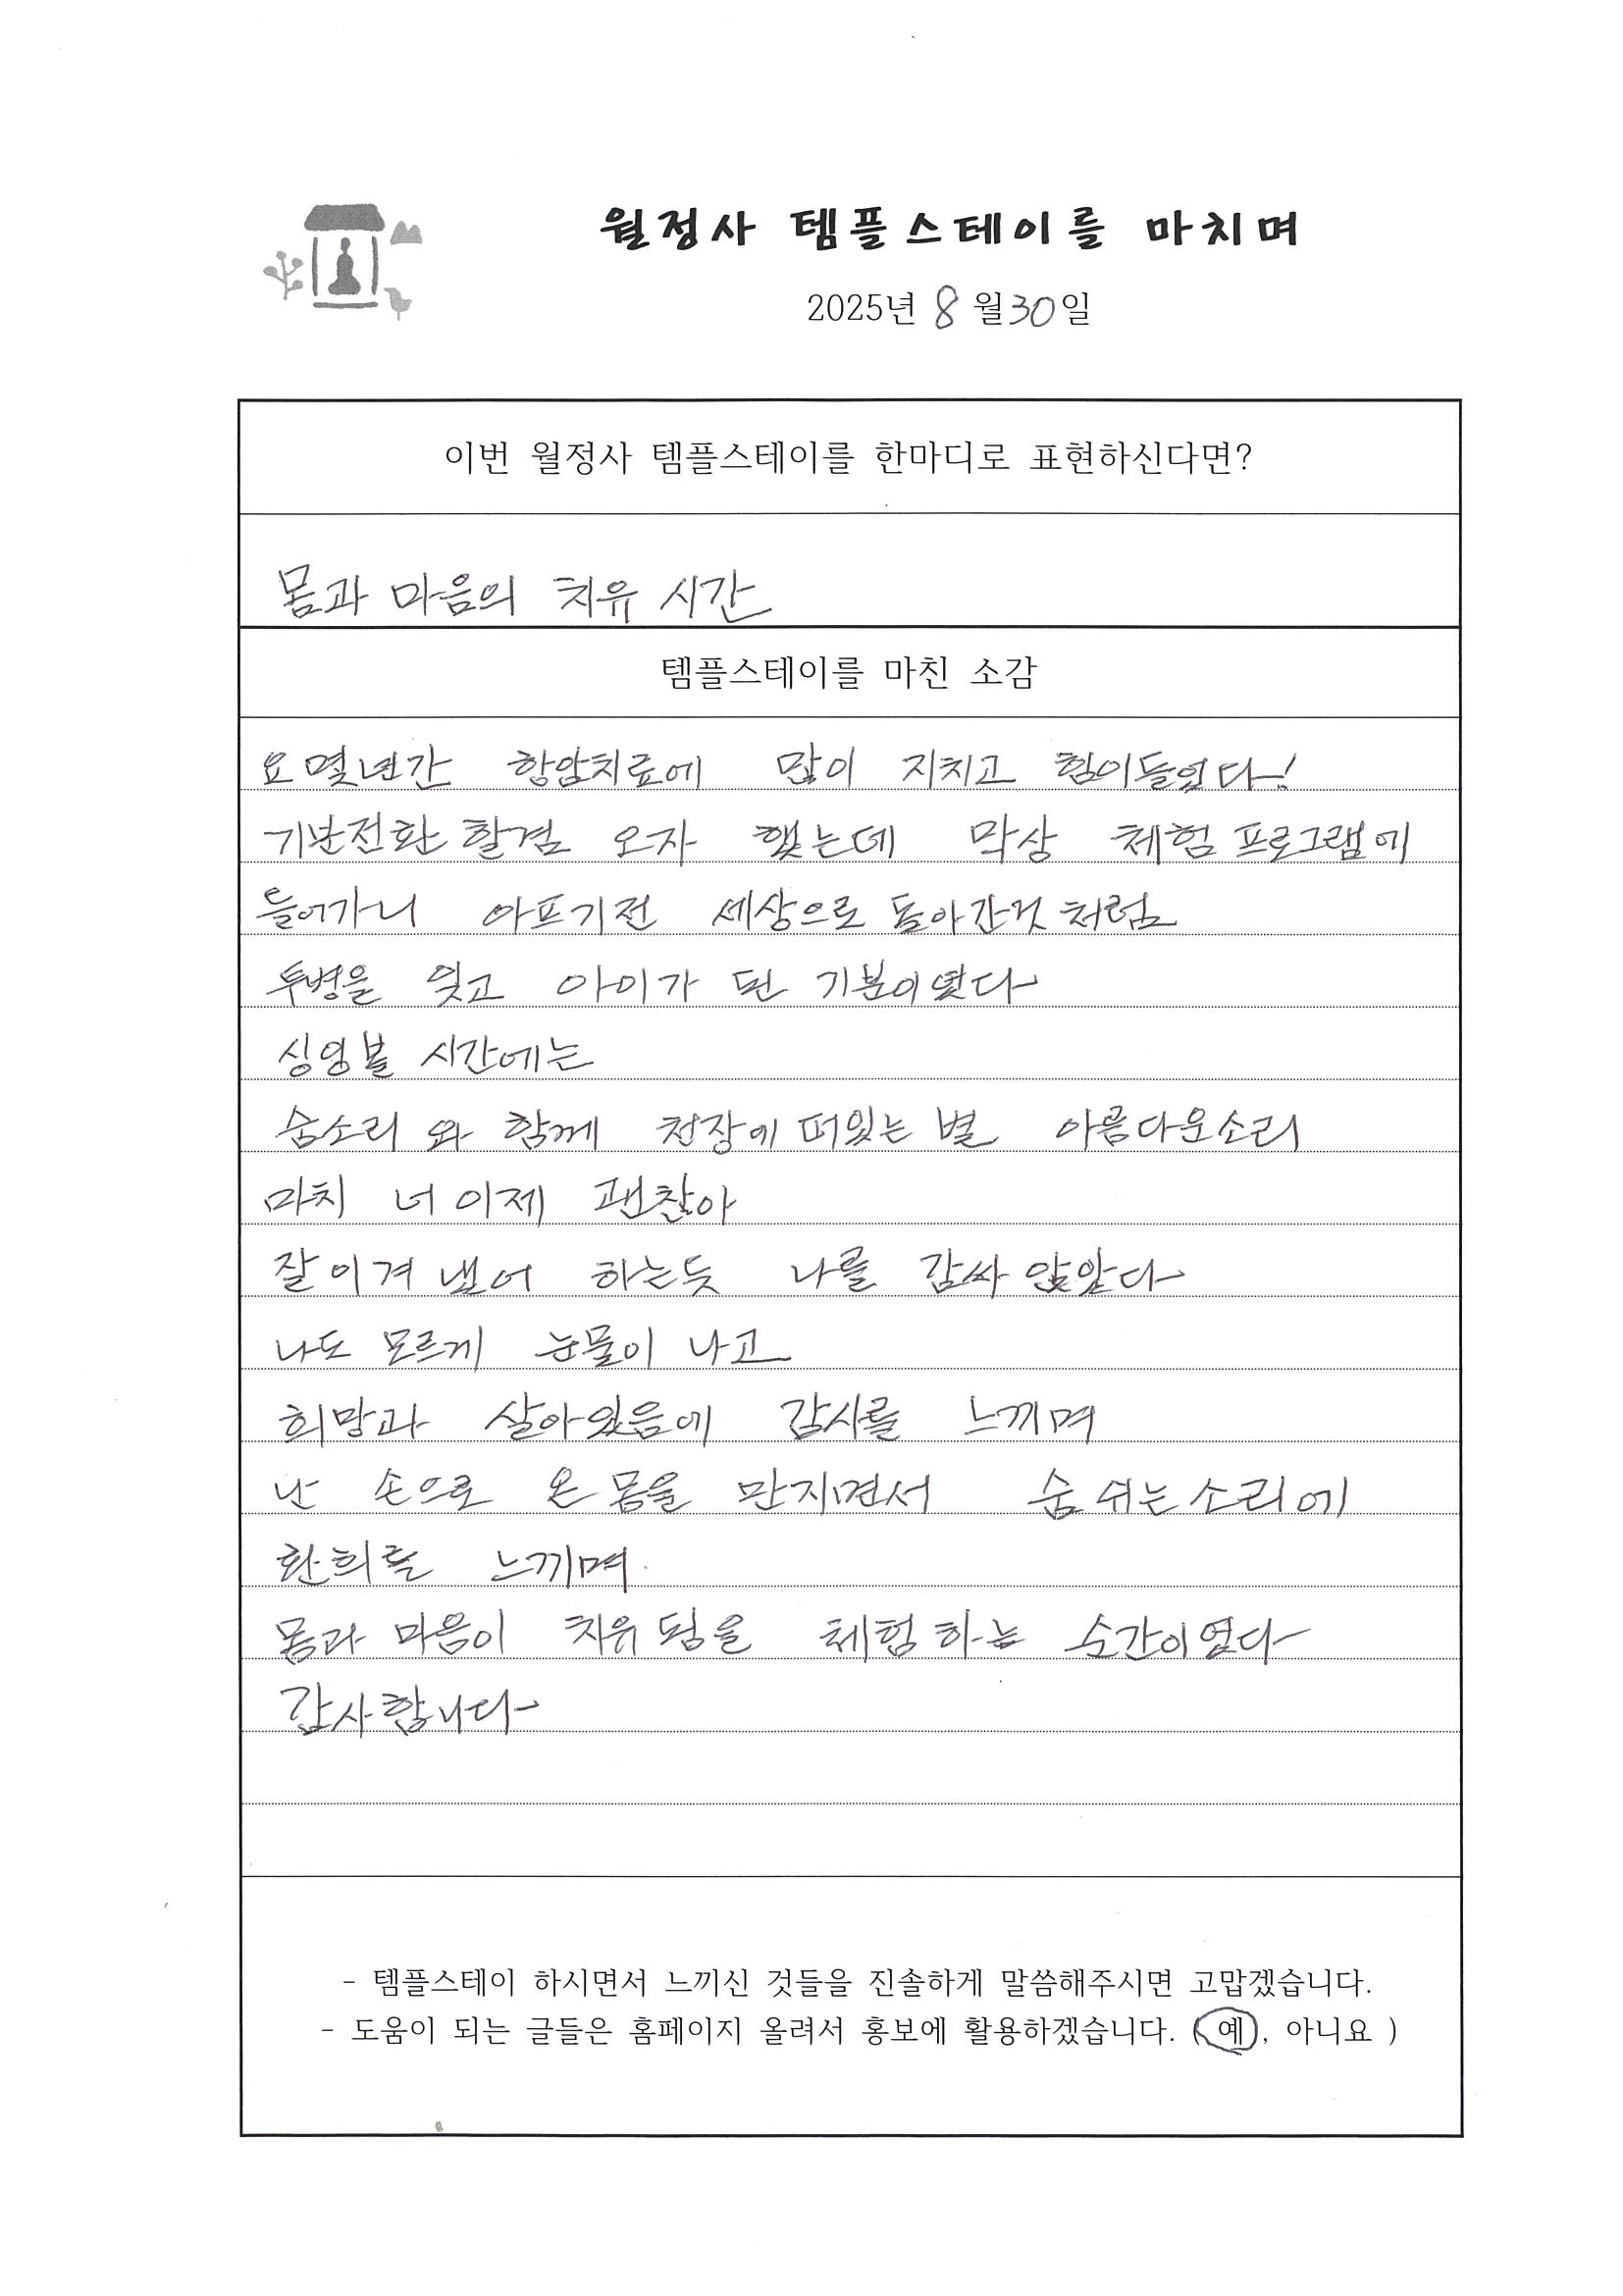 월정사 템플스테이를 마치며
2025년 8월 30일
이번 월정사 템플스테이를 한마디로 표현하신다면?
몸과 마음의 치유 시간
템플스테이를 마친 소감
요 몇년간 항암치료에 많이 지치고 힘이들었다!
기분전환 할겸 오자 했는데 막상 체험 프로그램에
들어가니 아프기전 세상으로 돌아간것 처럼
투병을 잊고 아이가 된 기분이였다
싱잉볼 시간에는
숨소리 와 함께 천장에 떠있는 별 아름다운소리
마치 너 이제 괜찮아
잘 이겨 냈어 하는듯 나를 감싸 안았다
나도 모르게 눈물이 나고
희망과 살아있음에 감사를 느끼며
난 손으로 온 몸을 만지면서 숨 쉬는 소리에
환희를 느끼며.
몸과 마음이 치유 됨을 체험 하는 순간이였다
감사합니다
- 템플스테이 하시면서 느끼신 것들을 진솔하게 말씀해주시면 고맙겠습니다.
- 도움이 되는 글들은 홈페이지 올려서 홍보에 활용하겠습니다. ( 예 , 아니요 )